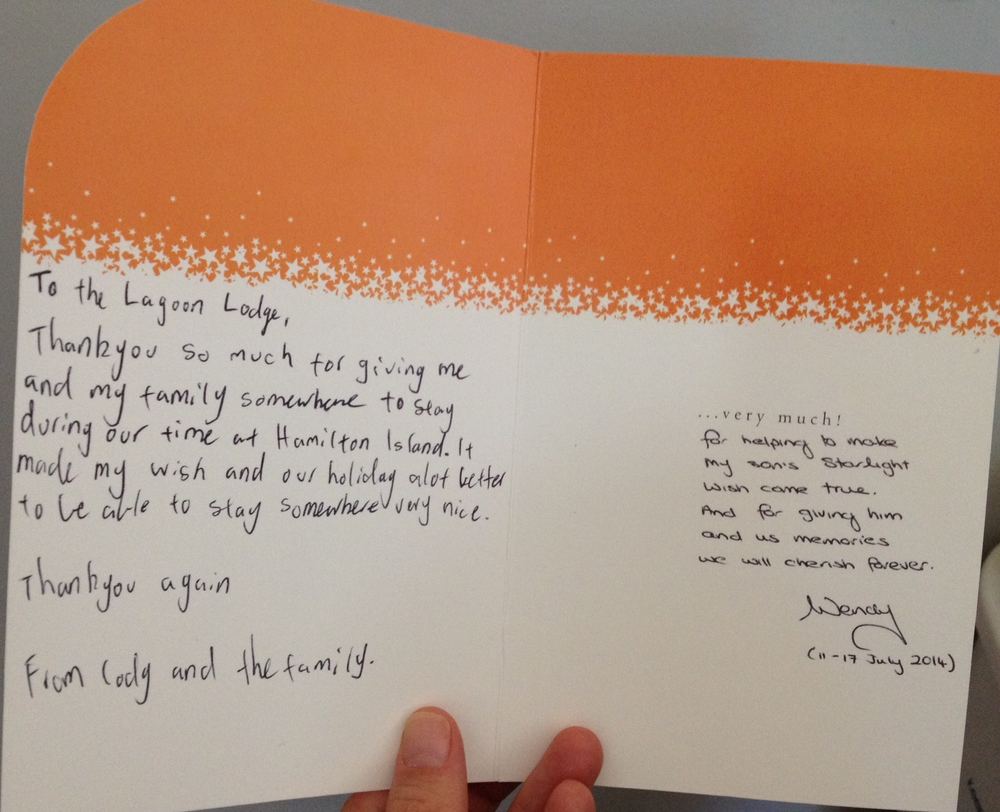 To the Lagoon Lodge,
Thankyou so much for giving me
and my family somewhere to stay
during our time at Hamilton Island. It
made my wish and our holiday alot better
to be able to stay somewhere very nice.
Thankyou again
From Cody and the family.
...very much!
for helping to make
my son's Starlight
wish come true.
And for giving him
and us memories
we will cherish forever.
Wendy
(11-17 July 2014)